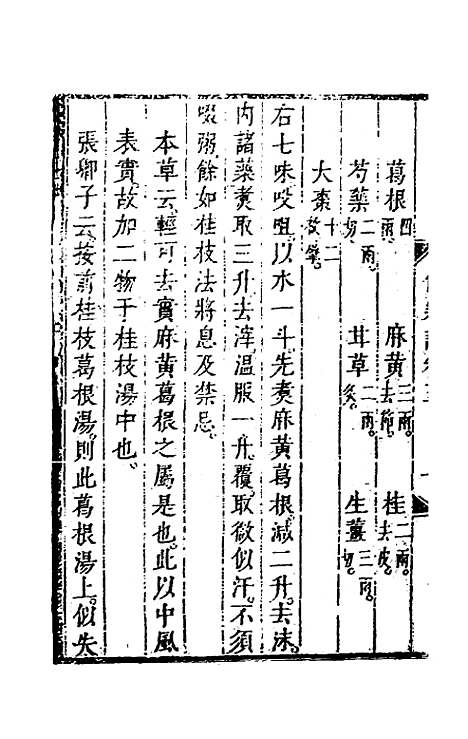 葛根四兩 麻黃三兩去節 桂二兩去皮
芍藥二兩切 甘草二兩炙 生薑三兩切
大棗十二枚擘
右七味㕮咀以水一斗先煑麻黃葛根減二升去沫
內諸藥煑取三升去滓溫服一升覆取微似汗不須
啜粥餘如桂枝法將息及禁忌
本草云輕可去實麻黃葛根之屬是也此以中風
表實故加二物于桂枝湯中也
張卿子云按前桂枝葛根湯則此葛根湯上似失